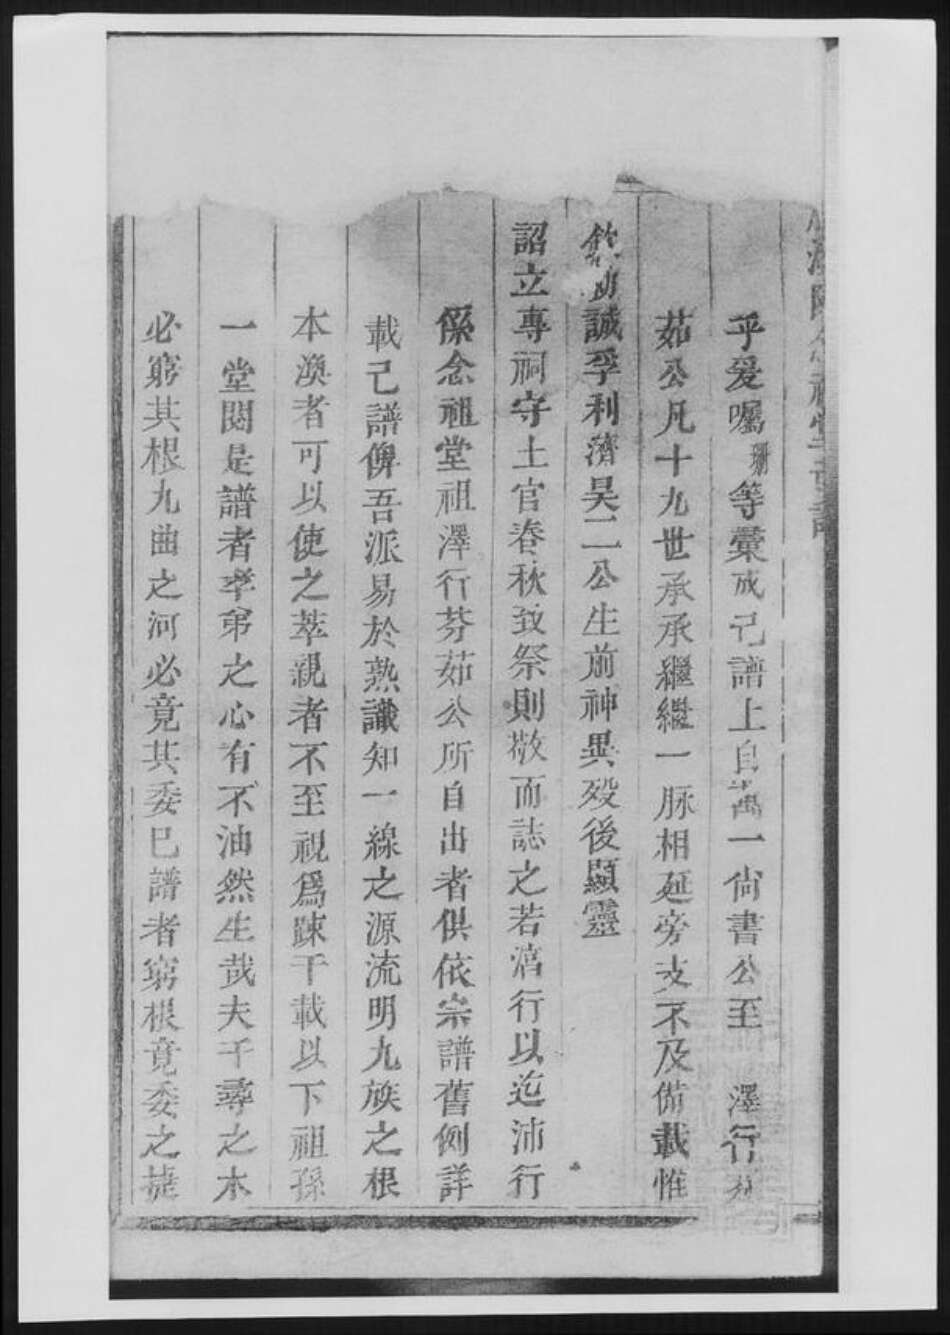 乎爰囑珊等彙成己譜上自萬一尙書公至 澤行芬
茹公凡十九世承承繼繼一脉相延旁支不及備載惟
敕誠孚利濟吴二公生前神異殁後顯靈
詔立專祠守土官春秋致祭則敬而誌之若滔行以迄沛行
係念祖堂祖澤行芬茹公所自出者俱依宗譜舊例詳
載己譜俾吾派易於熟識知一線之源流明九族之根
本渙者可以使之萃親者不至視爲踈千載以下祖孫
一堂閱是譜者孝弟之心有不油然生哉夫千尋之木
必窮其根九曲之河必竟其委己譜者窮根竟委之捷